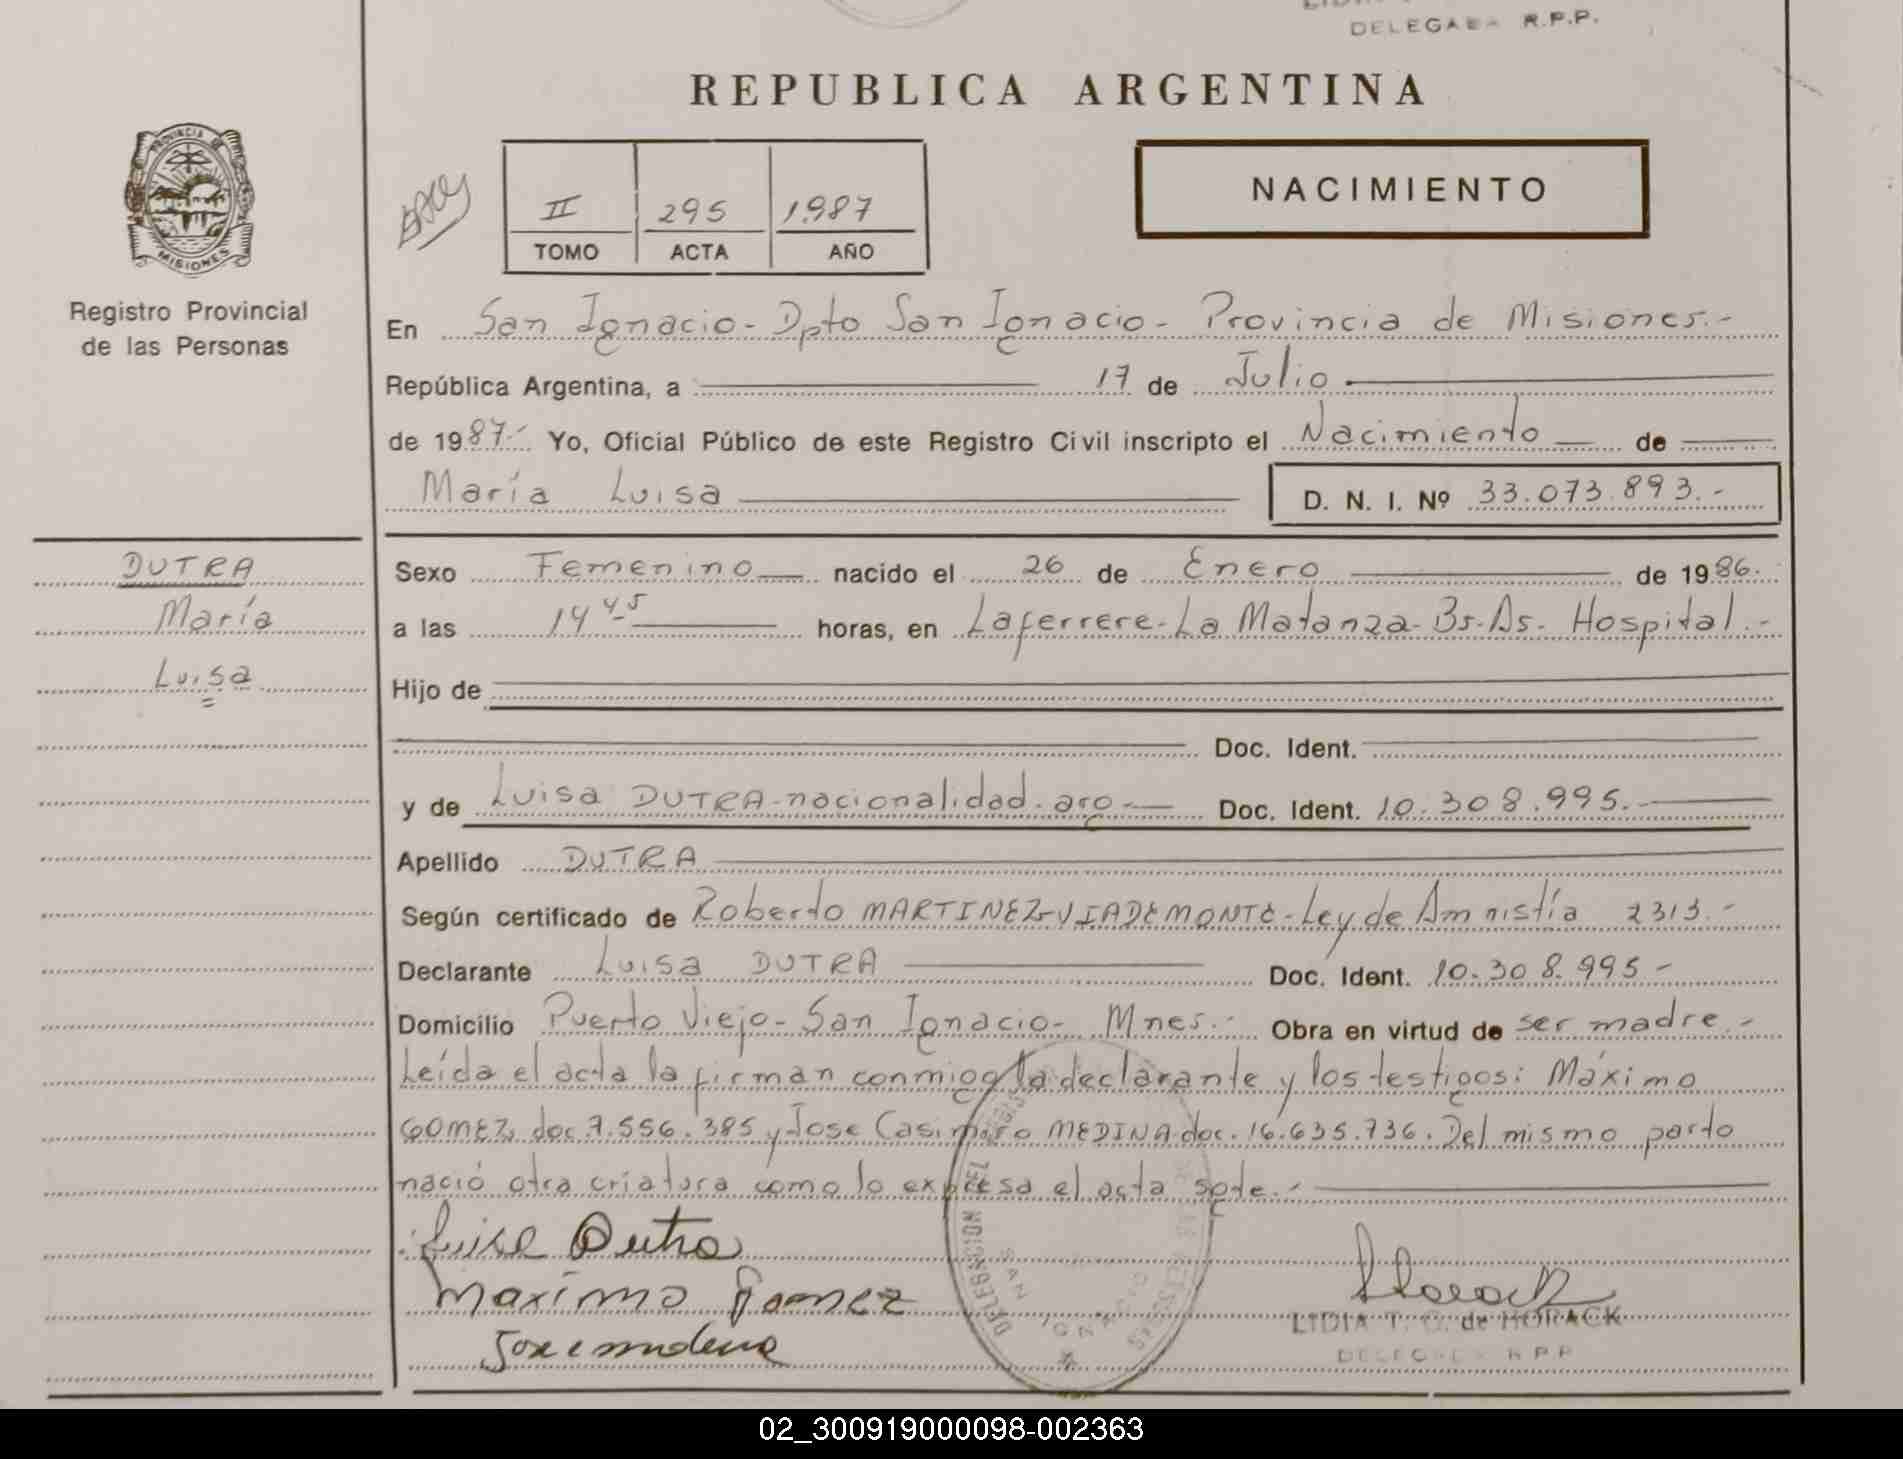 DELEGADA R.P.P.
REPUBLICA ARGENTINA
PROVINCIA DE
MISIONES
Registro Provincial
de las Personas
II 295 1987
TOMO ACTA AÑO
NACIMIENTO
En San Ignacio - Dpto San Ignacio - Provincia de Misiones.-
República Argentina, a 17 de Julio
de 1987.- Yo, Oficial Público de este Registro Civil inscripto el Nacimiento de
María Luisa D. N. I. Nº 33.073.893.-
DUTRA
María
Luisa
Sexo Femenino nacido el 26 de Enero de 1986.
a las 14 45 horas, en Laferrere - La Matanza - Bs. As. Hospital.-
Hijo de
Doc. Ident.
y de Luisa DUTRA - nacionalidad. arg.- Doc. Ident. 10.308.995.-
Apellido DUTRA
Según certificado de Roberto MARTINEZ - VIADEMONTE - Ley de Amnistía 2313.-
Declarante Luisa DUTRA Doc. Ident. 10.308.995-
Domicilio Puerto Viejo - San Ignacio - Mnes.- Obra en virtud de ser madre.-
Leída el acta la firman conmigo la declarante y los testigos: Máximo
GOMEZ, doc. 7.556.385 y Jose Casimiro MEDINA doc. 16.635.736. Del mismo parto
nació otra criatura como lo expresa el acta sgte.-
Luisa Dutra
Maximo Gomez
DELEGACION DEL
SAN IGNACIO
LIDIA T. O. de HORACK
DELEGADA R.P.P.
02_300919000098-002363